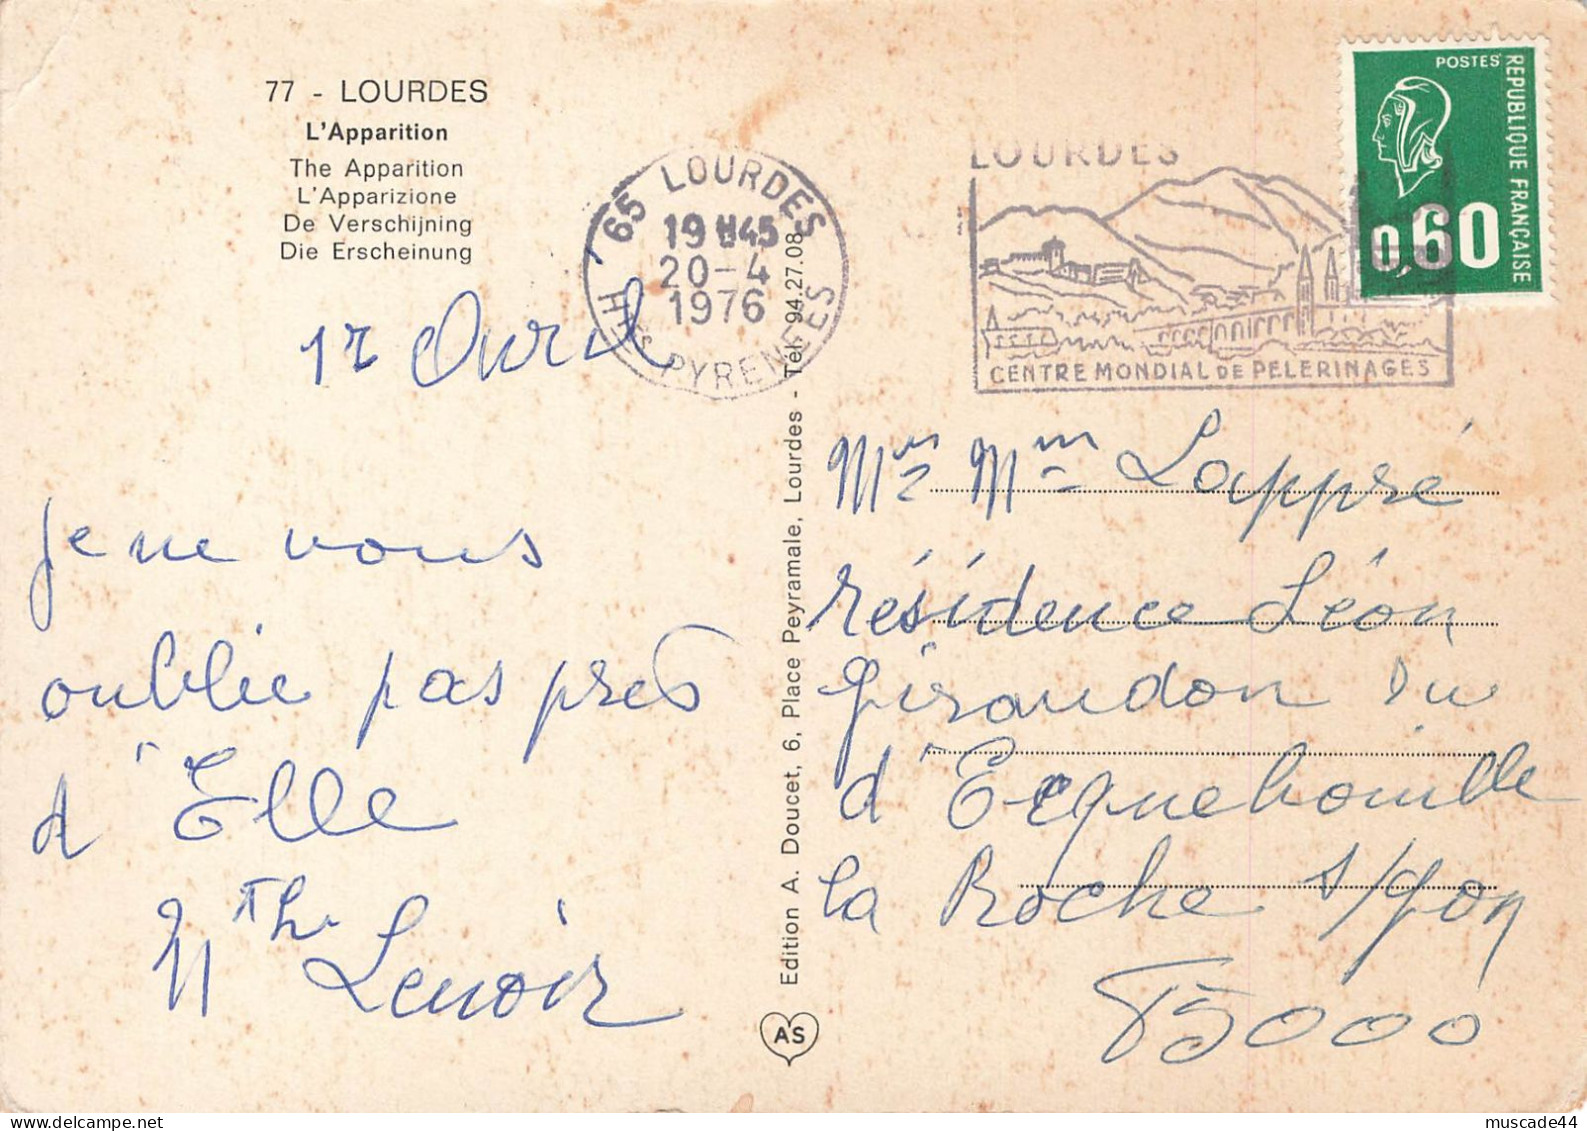 77 - LOURDES
L'Apparition
The Apparition
L'Apparizione
De Verschijning
Die Erscheinung
65 LOURDES
19H45
20-4
1976
HTES PYRENEES
LOURDES
CENTRE MONDIAL DE PELERINAGES
POSTES
REPUBLIQUE FRANÇAISE
0,60
1r Avril
je ne vous
oublie pas près
d'Elle
Mth Lenoir
Edition A. Doucet, 6, Place Peyramale, Lourdes - Tél. 94.27.08
AS
Mr Mm Lappré
résidence Léon
Girandon
d'Ecquebouille
la Roche s/Yon
85000
muscade44